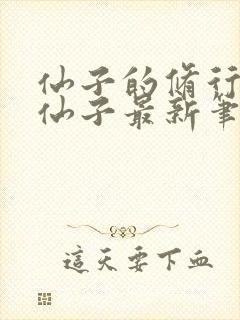 仙子的脩行
仙子最新筆
這天要下血